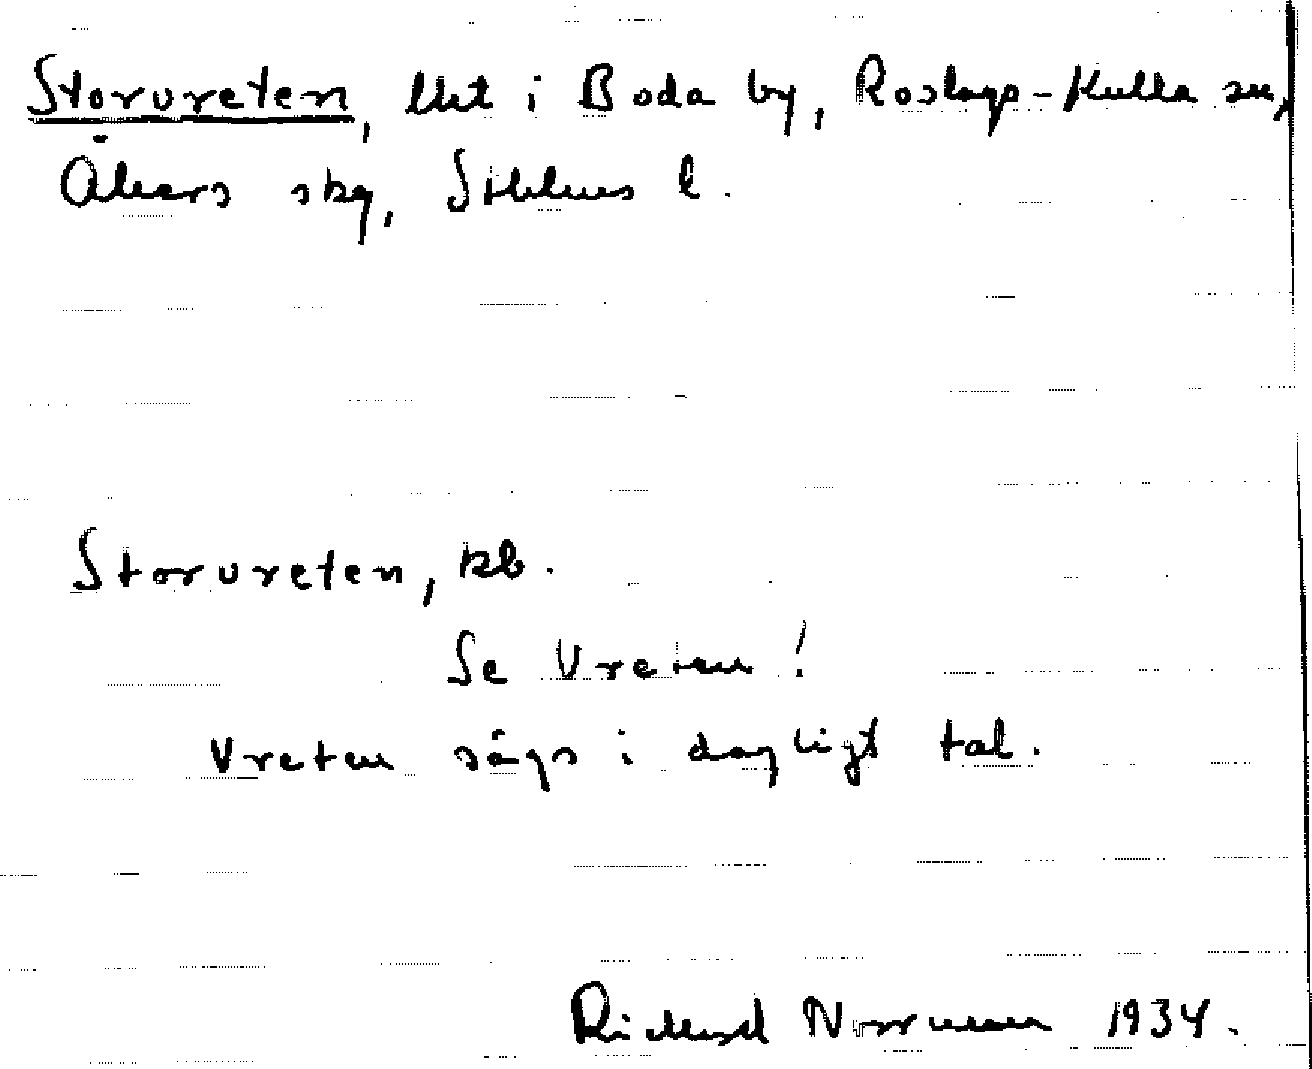 Storvreten, lht i Boda by, Roslags-Kulla sn,
Åkers skg, Sthlms l.
Storvreten, kb.
Se Vreten!
Vreten sägs i dagligt tal.
Rickard Norrman 1934.